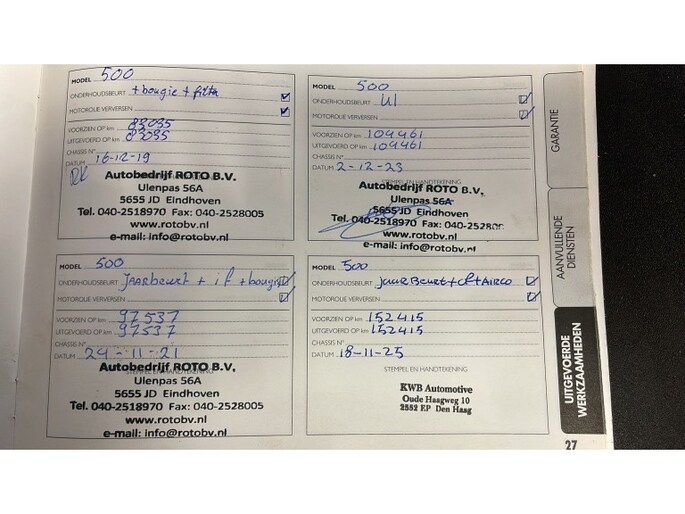 MODEL 500
ONDERHOUDSBEURT + bougie + filter
MOTOROLIE VERVERSEN
VOORZIEN OP km 83035
UITGEVOERD OP km 83035
CHASSIS N°
DATUM 16-12-19
Autobedrijf ROTO B.V.
Ulenpas 56A
5655 JD Eindhoven
Tel. 040-2518970 Fax: 040-2528005
www.rotobv.nl
e-mail: info@rotobv.nl
MODEL 500
ONDERHOUDSBEURT
MOTOROLIE VERVERSEN
VOORZIEN OP km 104461
UITGEVOERD OP km 104461
CHASSIS N°
DATUM 2-12-23
STEMPEL EN HANDTEKENING
Autobedrijf ROTO B.V.
Ulenpas 56A
5655 JD Eindhoven
Tel. 040-2518970 Fax: 040-252800
www.rotobv.nl
e-mail: info@rotobv.nl
MODEL 500
ONDERHOUDSBEURT Jaarbeurt + if + bougie
MOTOROLIE VERVERSEN
VOORZIEN OP km 97537
UITGEVOERD OP km 97537
CHASSIS N°
DATUM 24-11-21
Autobedrijf ROTO B.V.
Ulenpas 56A
5655 JD Eindhoven
Tel. 040-2518970 Fax: 040-2528005
www.rotobv.nl
e-mail: info@rotobv.nl
MODEL 500
ONDERHOUDSBEURT + AIRCO
MOTOROLIE VERVERSEN
VOORZIEN OP km 152415
UITGEVOERD OP km 152415
CHASSIS N°
DATUM 18-11-25
STEMPEL EN HANDTEKENING
KWB Automotive
Oude Haagweg 10
2552 EP Den Haag
GARANTIE
AANVULLENDE
DIENSTEN
UITGEVOERDE
WERKZAAMHEDEN
27